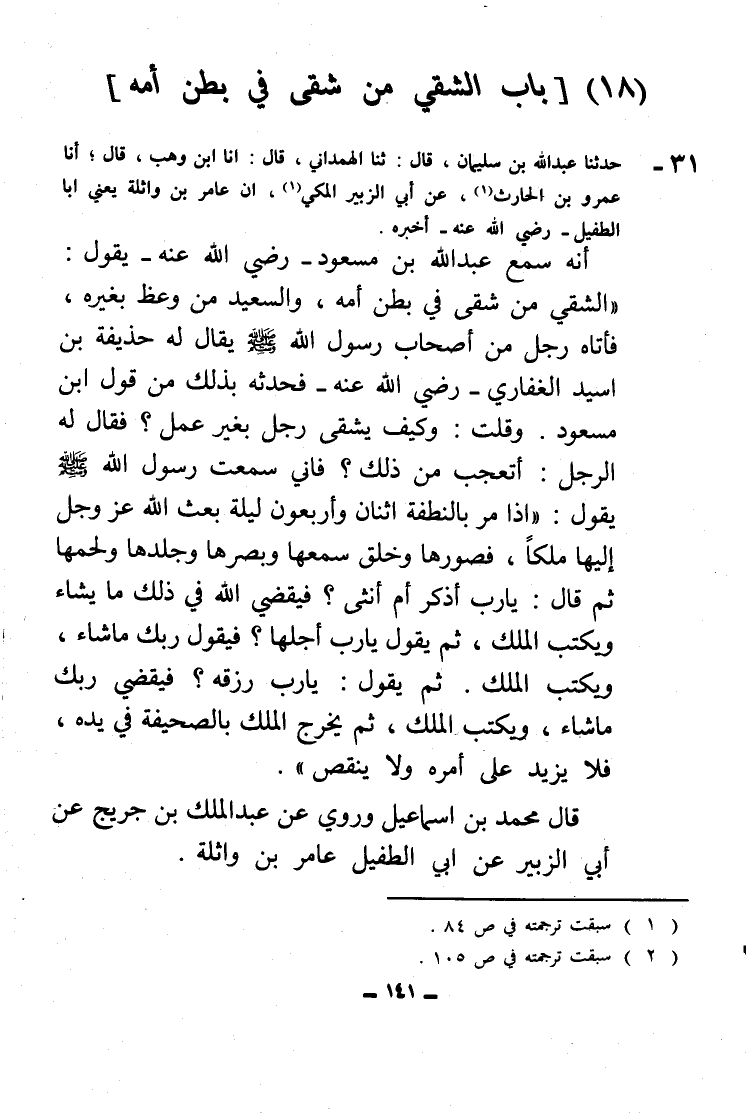 (١٨) [ باب الشقي من شقى في بطن أمه ]
٣١ ـ حدثنا عبدالله بن سليمان ، قال : ثنا الهمداني ، قال : انا ابن وهب ، قال ؛ أنا
عمرو بن الحارث(١) ، عن أبي الزبير المكي(١) ، ان عامر بن واثلة يعني ابا
الطفيل ـ رضي الله عنه ـ أخبره .
أنه سمع عبدالله بن مسعود ـ رضي الله عنه ـ يقول :
«الشقي من شقى في بطن أمه ، والسعيد من وعظ بغيره ،
فأتاه رجل من أصحاب رسول الله ﷺ يقال له حذيفة بن
اسيد الغفاري ـ رضي الله عنه ـ فحدثه بذلك من قول ابن
مسعود . وقلت : وكيف يشقى رجل بغير عمل ؟ فقال له
الرجل : أتعجب من ذلك ؟ فاني سمعت رسول الله ﷺ
يقول : «اذا مر بالنطفة اثنان وأربعون ليلة بعث الله عز وجل
إليها ملكاً ، فصورها وخلق سمعها وبصرها وجلدها ولحمها
ثم قال : يارب أذكر أم أنثى ؟ فيقضي الله في ذلك ما يشاء
ويكتب الملك ، ثم يقول يارب أجلها ؟ فيقول ربك ماشاء ،
ويكتب الملك . ثم يقول : يارب رزقه ؟ فيقضي ربك
ماشاء ، ويكتب الملك ، ثم يخرج الملك بالصحيفة في يده ،
فلا يزيد على أمره ولا ينقص » .
قال محمد بن اسماعيل وروي عن عبدالملك بن جريج عن
أبي الزبير عن ابي الطفيل عامر بن واثلة .
( ١ ) سبقت ترجمته في ص ٨٤ .
( ٢ ) سبقت ترجمته في ص ١٠٥ .
ـ ١٤١ ـ